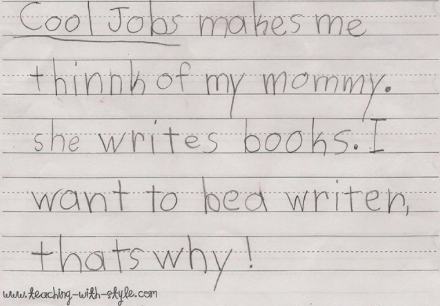 Cool Jobs makes me
thinnk of my mommy.
she writes books. I
want to be a writer,
thats why!
www.teaching-with-style.com